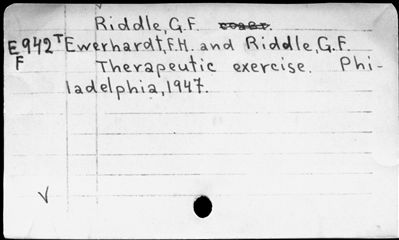 Riddle, G.F.
E942T Ewerhardt, F.H. and Riddle, G.F.
F Therapeutic exercise. Phi-
ladelphia, 1947.